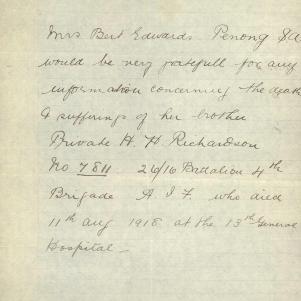 Mrs Bert Edwards Penong SA
would be very gratefull for any
information concerning the death
& sufferings of her brother
Private H. H. Richardson
No 7811 26/16 Battalion 4th
Brigade A. I. F. who died
11th Aug 1918 at the 13th General
Hospital -